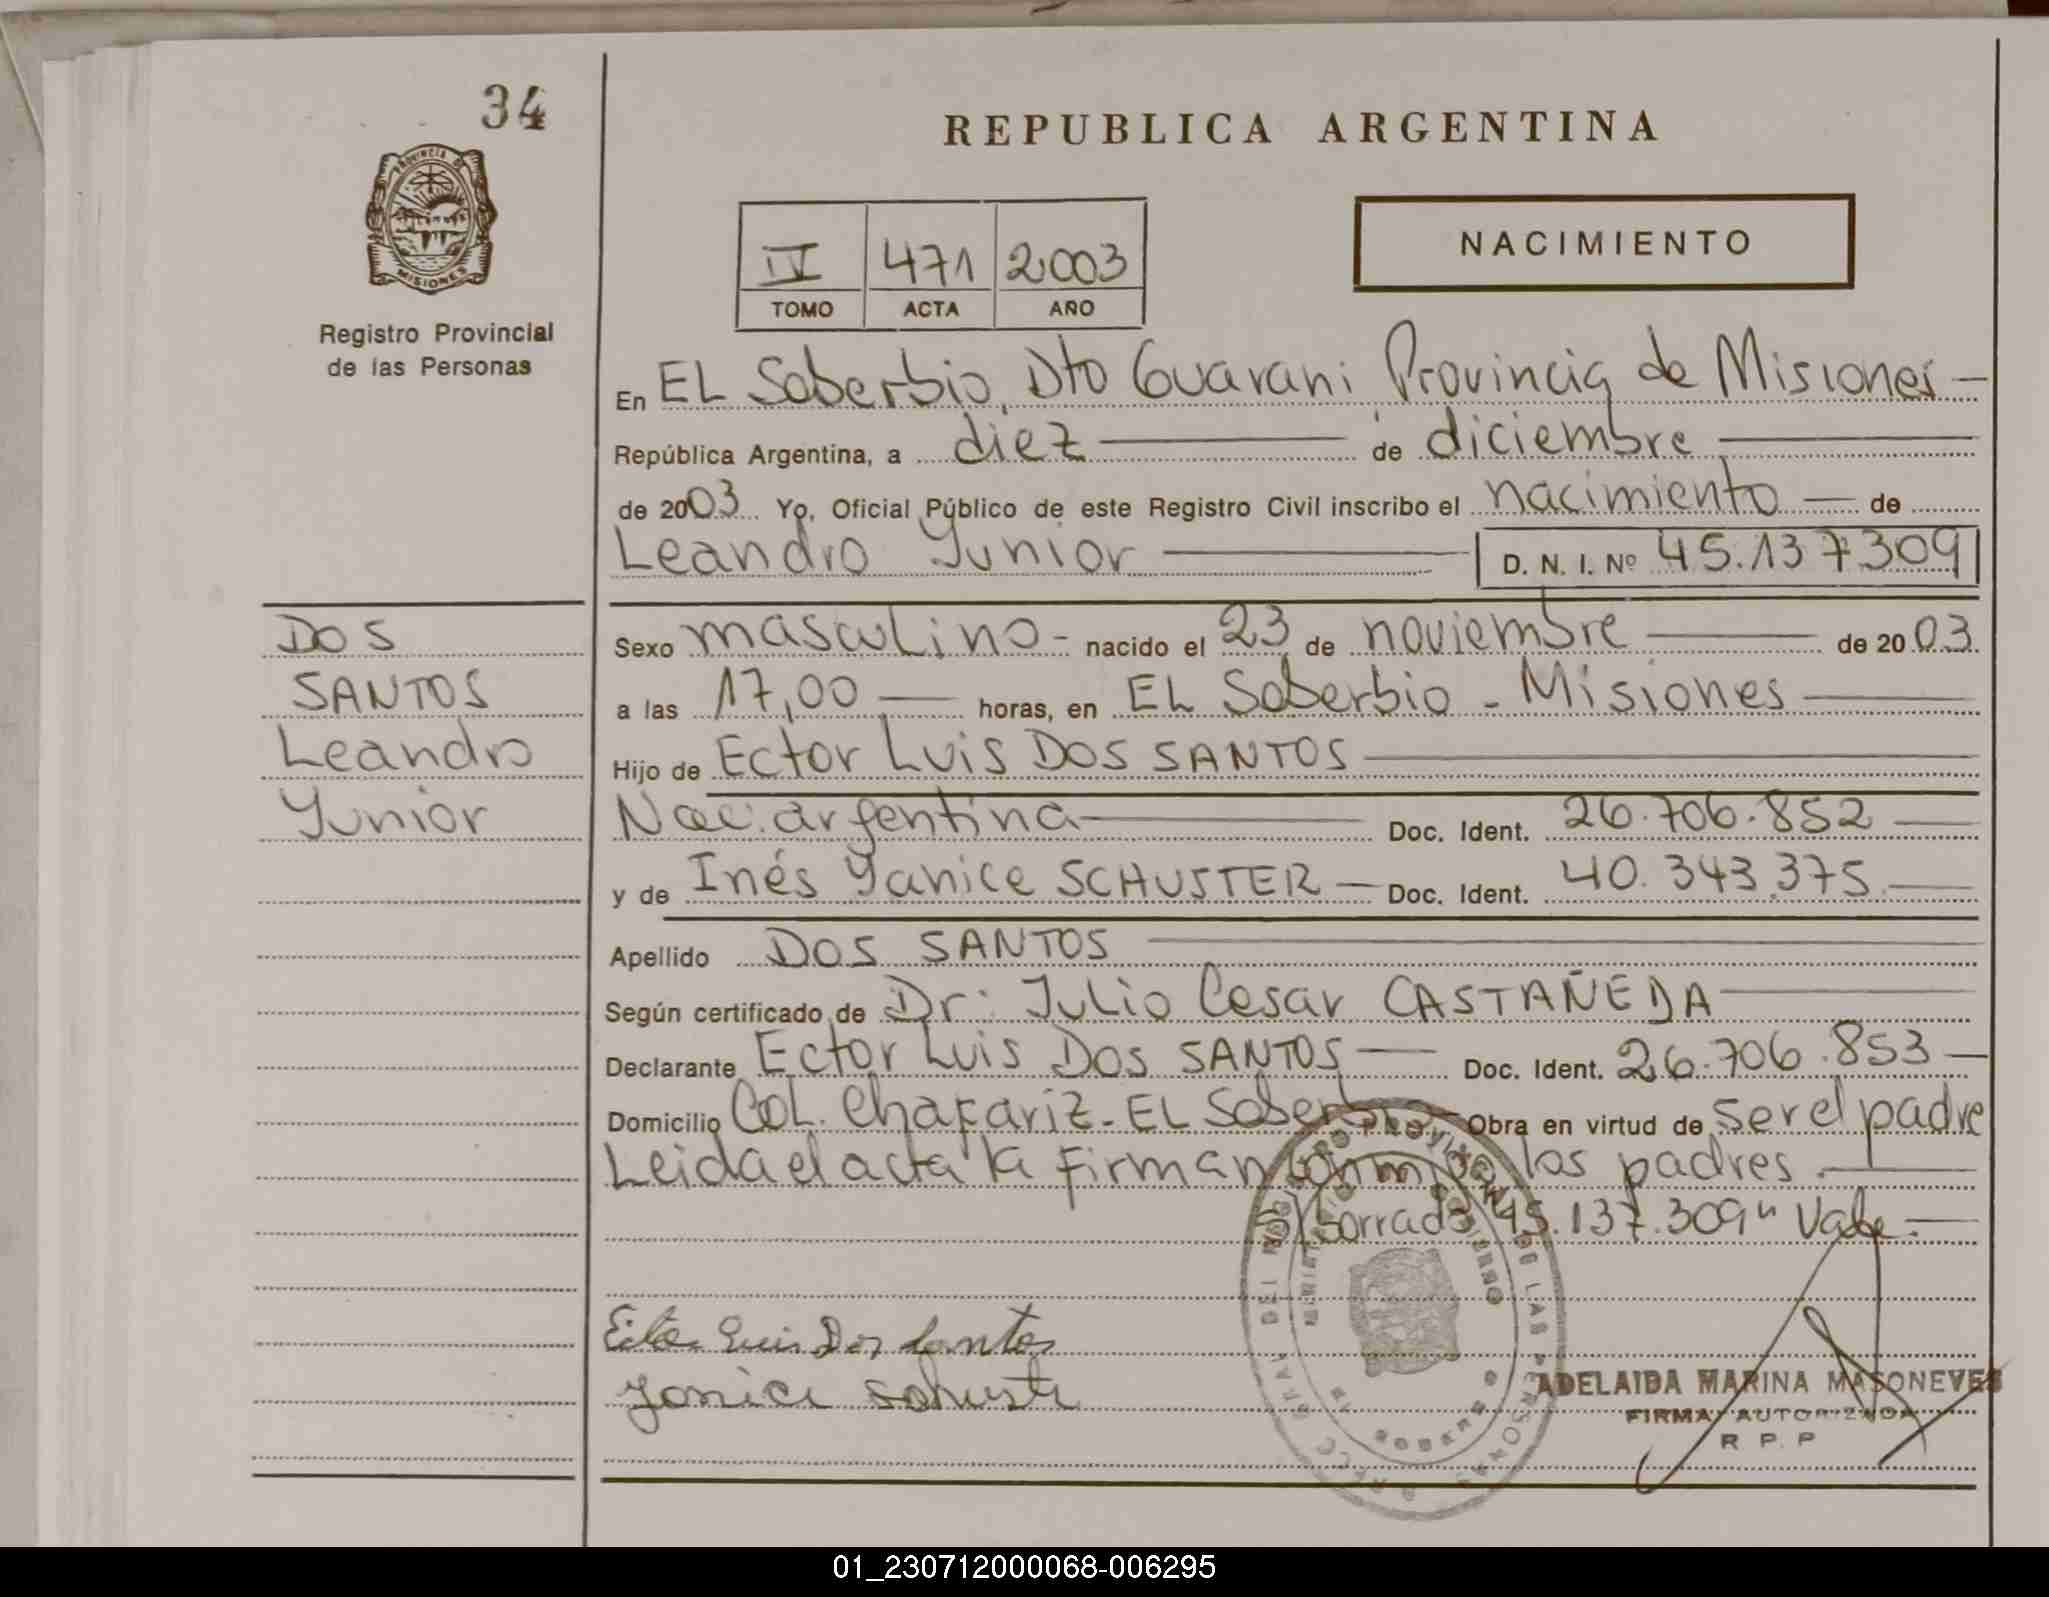 34
PROVINCIA DE
MISIONES
Registro Provincial
de las Personas
REPUBLICA ARGENTINA
NACIMIENTO
IV 471 2003
TOMO ACTA AÑO
En EL Soberbio, Dto Guarani Provincia de Misiones
República Argentina, a diez de diciembre
de 2003 Yo, Oficial Público de este Registro Civil inscribo el nacimiento de
Leandro Yunior D. N. I. Nº 45.137309
DOS
SANTOS
Leandro
Yunior
Sexo masculino - nacido el 23 de noviembre de 2003
a las 17,00 horas, en EL Soberbio - Misiones
Hijo de Ector Luis DOS SANTOS
Nac. argentina Doc. Ident. 26.706.852
y de Inés Yanice SCHUSTER Doc. Ident. 40.343.375
Apellido DOS SANTOS
Según certificado de Dr: Julio Cesar CASTAÑEDA
Declarante Ector Luis Dos SANTOS Doc. Ident. 26.706.853
Domicilio Col. Chafariz - EL Soberbio Obra en virtud de ser el padre
Leida el acta la firman conmigo los padres.
S/borrado "45.137.309" Vale.
Ector Luis Dos Santos
Yanice Schuster
ADELAIDA MARINA MASONEVES
FIRMA AUTORIZADA
R P. P
01_230712000068-006295